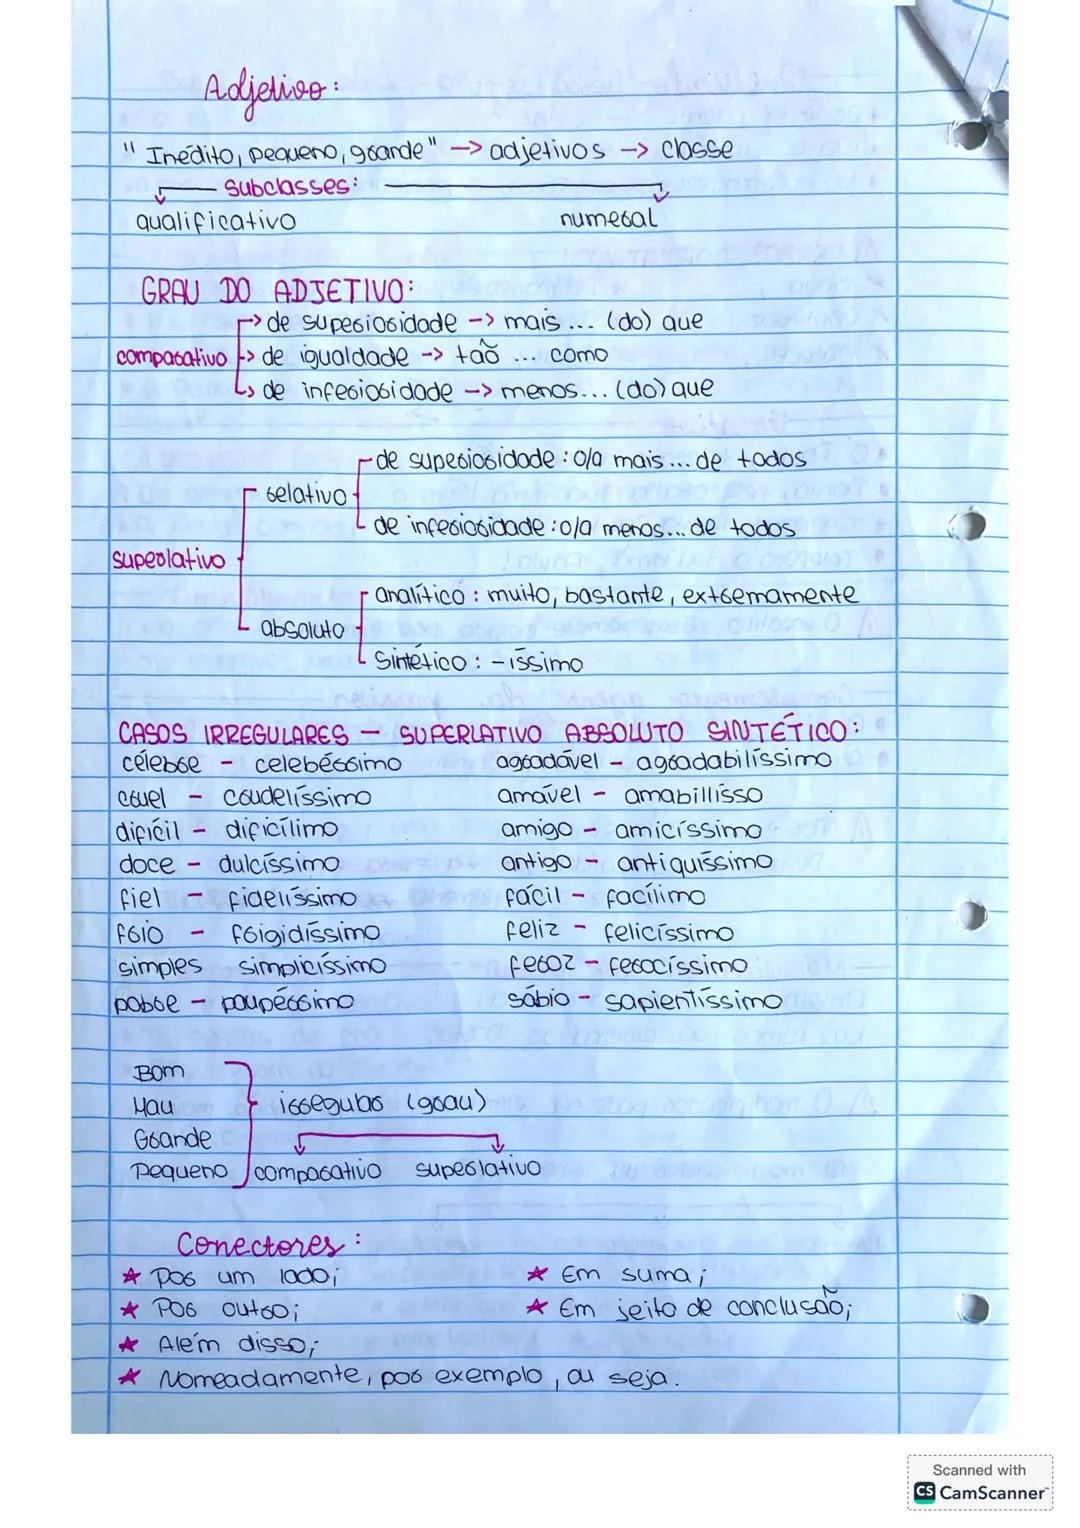 Adjetivo:
" Inédito, pequeno, grande" -> adjetivos -> classe
subclasses:
qualificativo numeral
GRAU DO ADJETIVO:
-> de superioridade -> mais ... (do) que
comparativo -> de igualdade -> tão ... como
-> de inferioridade -> menos... (do) que
de superioridade : o/a mais ... de todos
relativo
de inferioridade : o/a menos... de todos
superlativo
analítico : muito, bastante, extremamente
absoluto
Sintético : -íssimo
CASOS IRREGULARES - SUPERLATIVO ABSOLUTO SINTÉTICO:
célebre - celebérrimo agradável - agradabilíssimo
cruel - crudelíssimo amável - amabillísso
difícil - dificílimo amigo - amicíssimo
doce - dulcíssimo antigo - antiquíssimo
fiel - fidelíssimo fácil - facílimo
frio - frigidíssimo feliz - felicíssimo
simples simplicíssimo feroz - ferocíssimo
pobre - paupérrimo sábio - sapientíssimo
Bom
Mau irregulares (grau)
Grande
Pequeno comparativo superlativo
Conectores :
★ Por um lado; ★ Em suma;
★ Por outro; ★ Em jeito de conclusão;
★ Além disso;
★ Nomeadamente, por exemplo, ou seja.
Scanned with
CS CamScanner